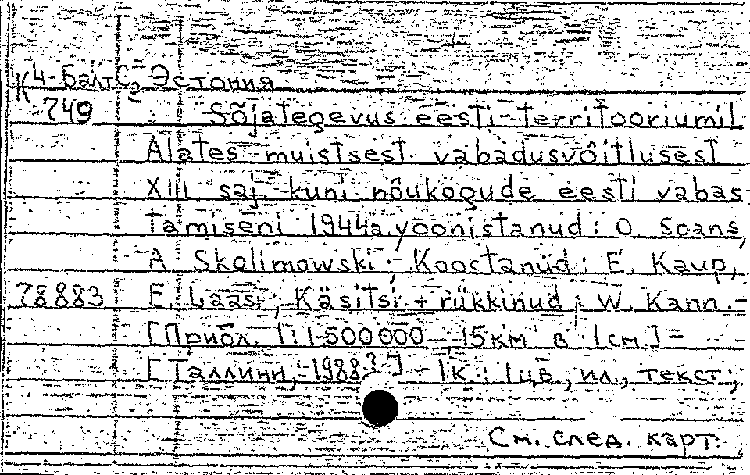 К 4-БалтС2 Эстония
749 Sõjategevus eesti territooriumil
Alates muistsest vabadusvõitlusest
XIII saj. kuni nõukogude eesti vabas
tamiseni 1944a. yoonistanud: O. Soans,
A Skolimowski; Koostanud: E. Kaup,
78883 E. Laasi, Käsitsi trükkinud: W. Kann.-
[Прибл. 1:1500000 15км в 1см]-
[Таллинн, 1988?] - 1к.: 1цв., ил., текст,
См. след. карт.